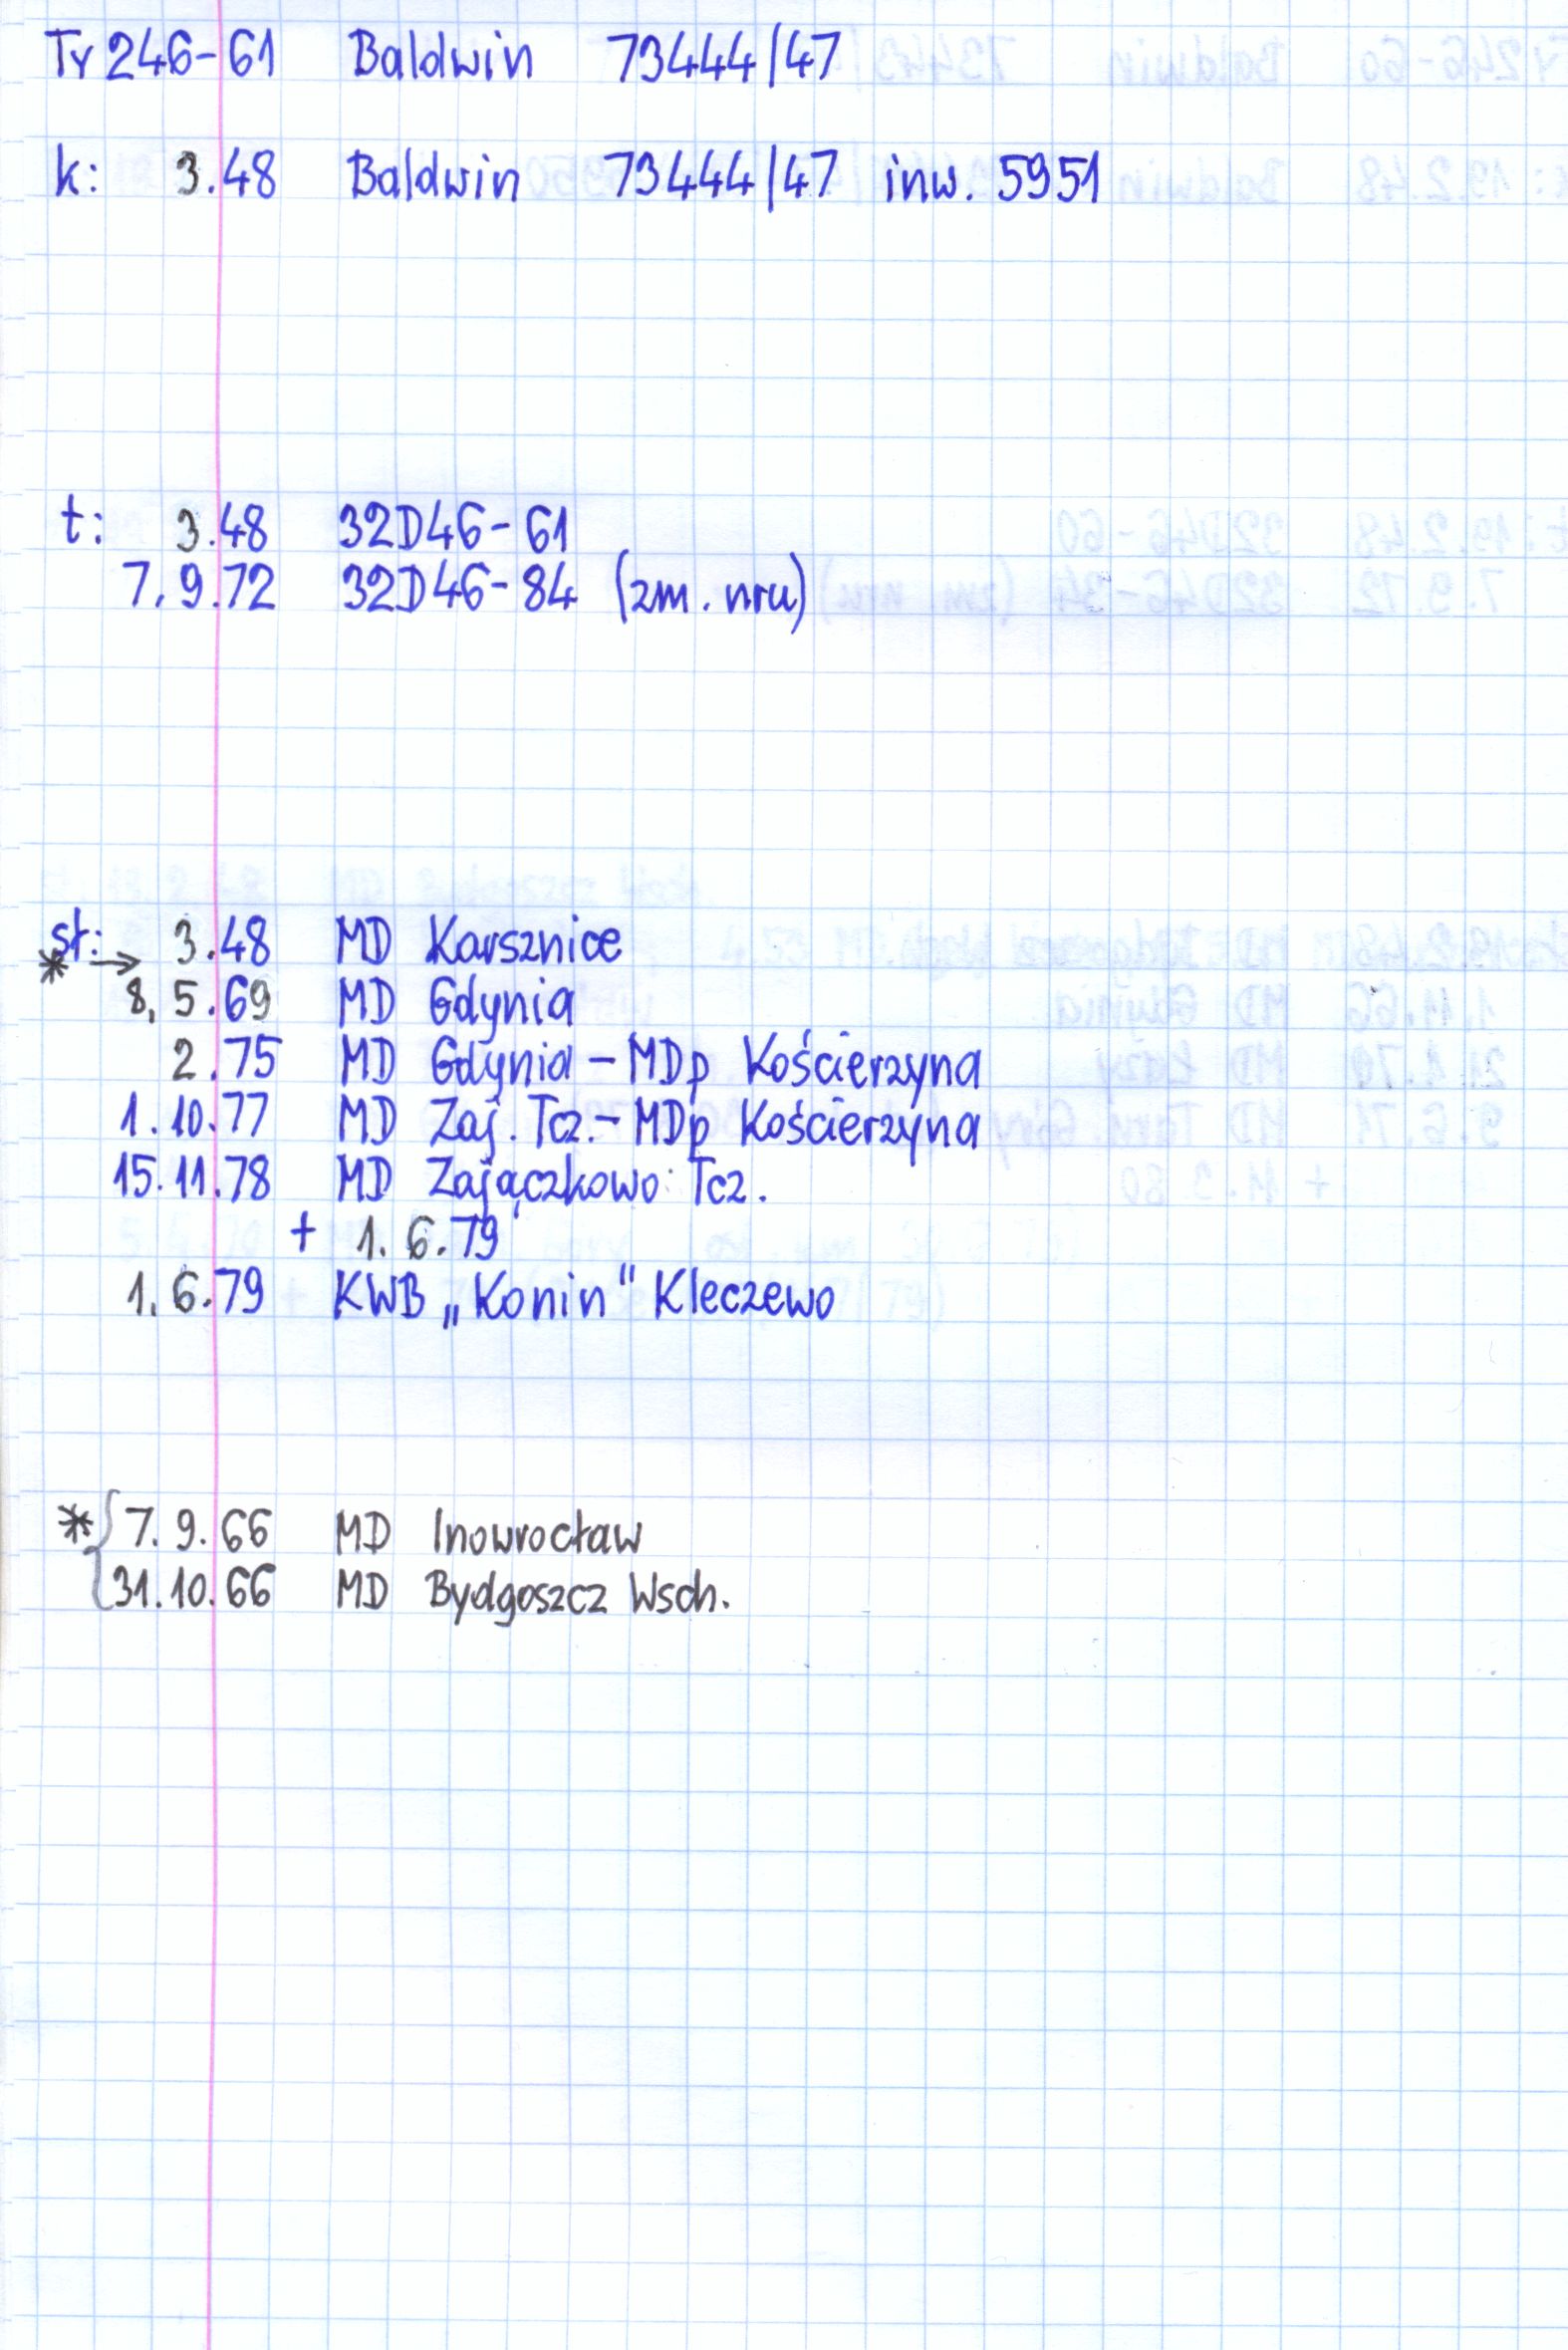 Ty 246-61 Baldwin 73444/47
k: 3.48 Baldwin 73444/47 inw. 5951
t: 3.48 32D46-61
7.9.72 32D46-84 (zm. nru)
st: 3.48 MD Karsznice
* →
8.5.69 MD Gdynia
2.75 MD Gdynia - MDp Kościerzyna
1.10.77 MD Zaj. Tcz. - MDp Kościerzyna
15.11.78 MD Zajączkowo Tcz.
+ 1.6.79
1.6.79 KWB „Konin" Kleczewo
* { 7.9.66 MD Inowrocław
31.10.66 MD Bydgoszcz Wsch.